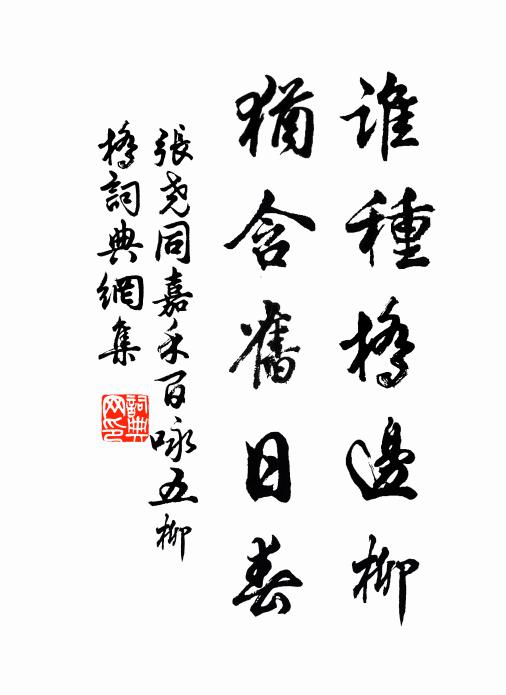 誰種橋邊柳
猶含舊日春
張堯同嘉禾百咏五柳
橋詞典網集
詞典
网印